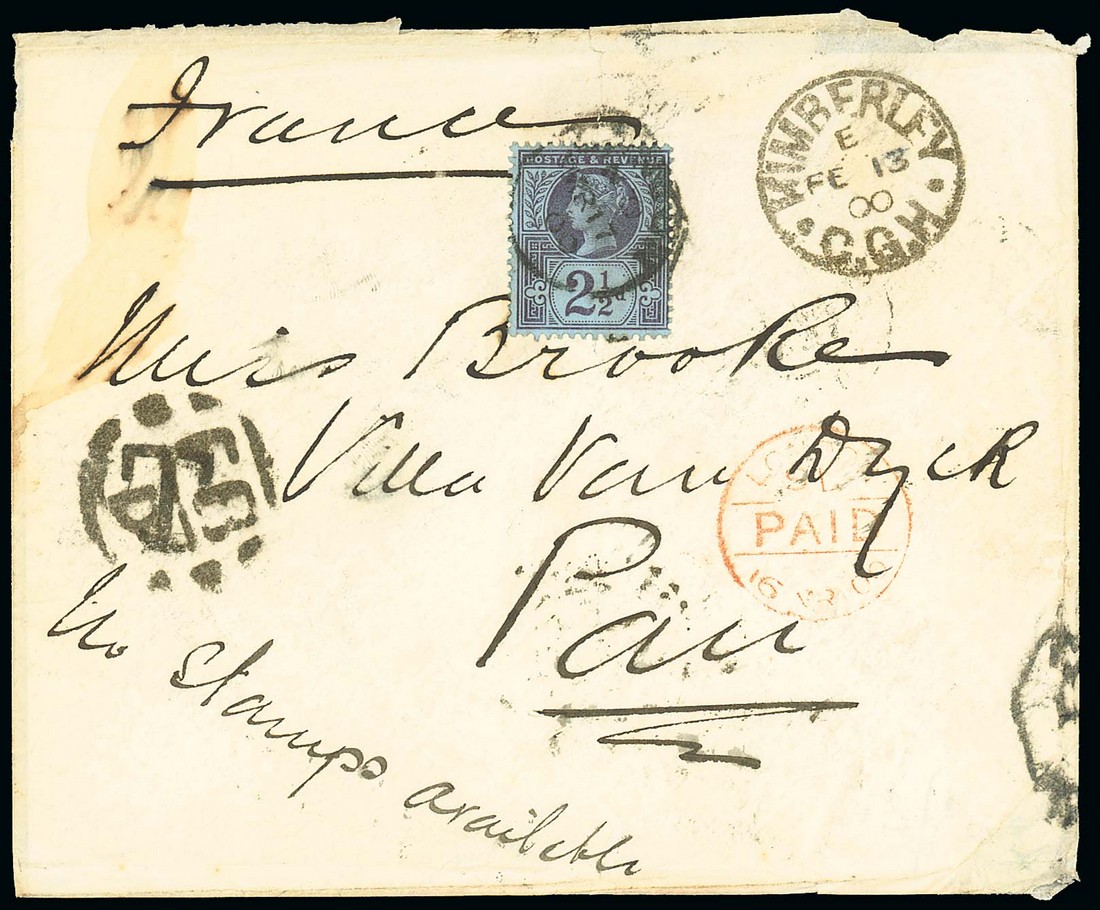 France
POSTAGE & REVENUE
2½d
KIMBERLEY
E
FE 13
00
C.G.H.
Miss Brooke
Villa Van Dyck
PAID
16 MR 00
Pau
No stamps available